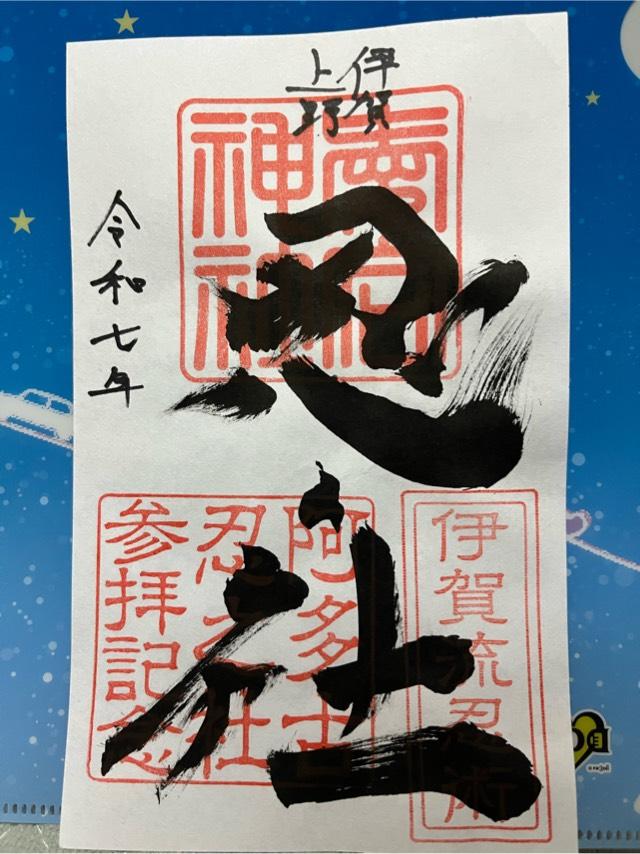 伊賀
上野
愛宕
神社
忍社
令和七年
伊賀流忍術
阿多古
忍之社
参拝記念